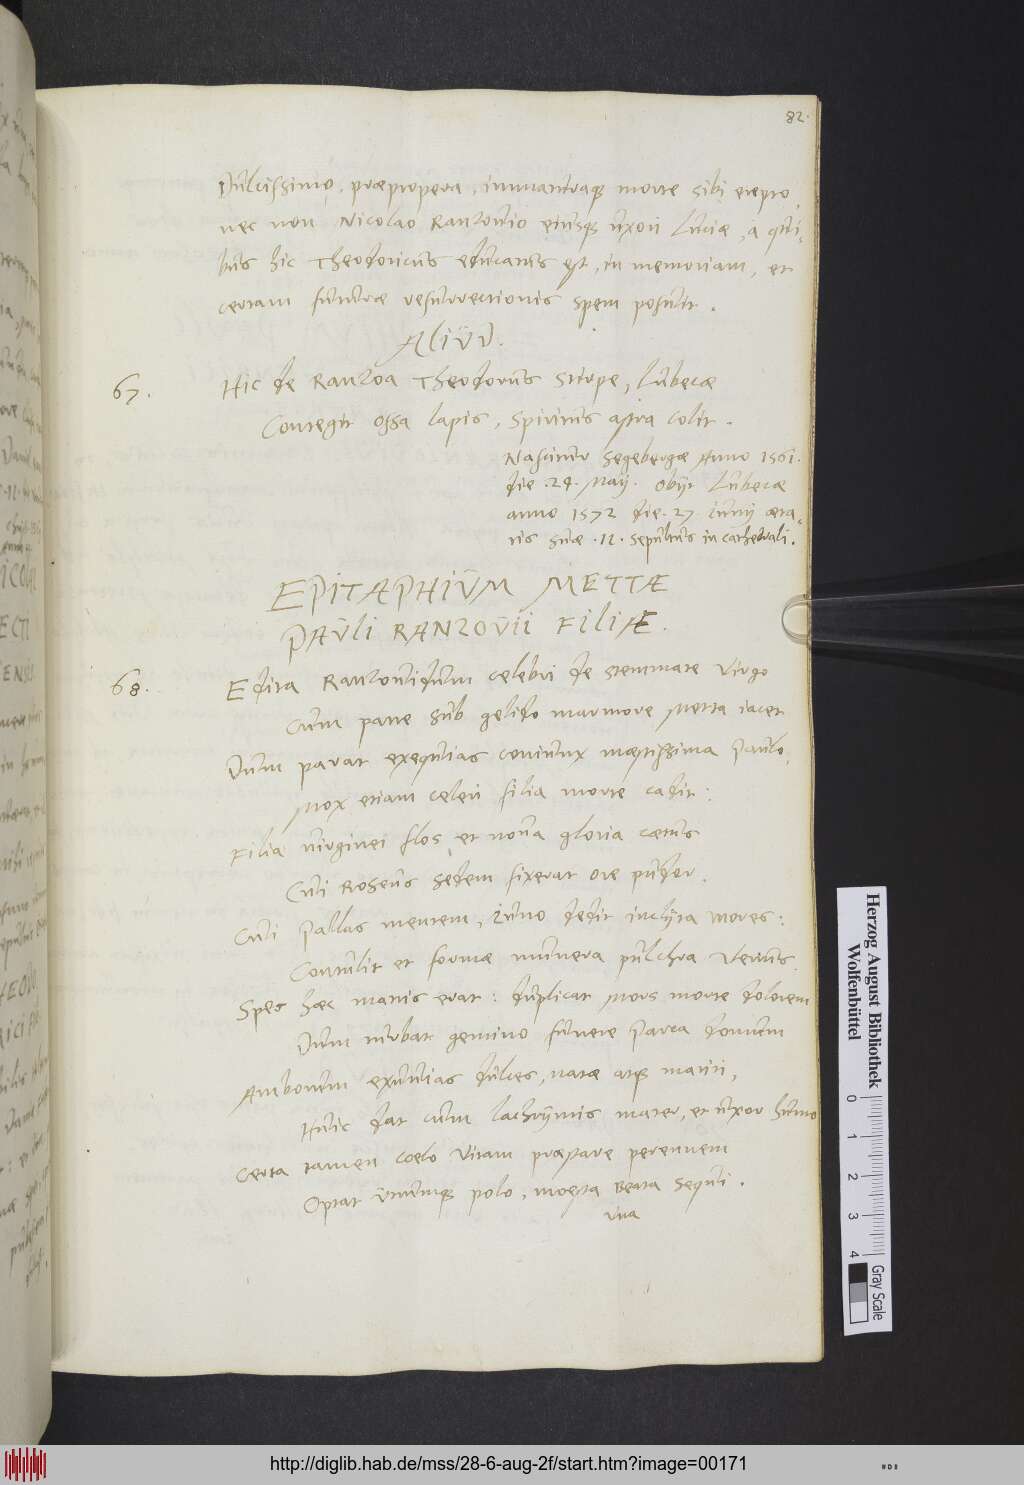 82.
Dulcissimo, praepropera, immaturaq; morte sibi erepto,
nec non Nicolao Ranzovio eiusq; uxori Luciae, à qui-
bus hic Theodoricus educatus est, in memoriam, et
certam futurae resurrectionis spem posuit.
ALIUD.
67. Hic de Ranzoa Theodorus stirpe, Lubecae
Contegit ossa lapis, Spiritus astra colit.
Nascitur Segebergae Anno 1561.
die .24. Maij. obijt Lubecae
anno 1572 die .27. Iunij aeta-
tis suae .11. sepultus in cathedrali.
EPITAPHIUM METTAE
PAULI RANZOVII FILIAE.
68. Edita Ranzouiadum celebri de stemmate Virgo
Cum patre sub gelido marmore Metta iacet
Dum parat exequias coniunx maestissima Paulo,
Mox etiam celeri filia morte cadit:
Filia virginei flos et noua gloria caetus
Cui Roseus sedem fixerat ore pudor.
Cui Pallas mentem, Iuno dedit inclyta mores:
Contulit et formae munera pulchra Venus.
Spes haec matris erat: duplicat Mors morte dolorem
Dum turbat gemino funere Parca domum
Amborum exuuias dulces, natae atq; mariti,
Huic dat cum lachrymis mater, et uxor humo
Certa tamen coelo Vitam praestare perennem
Optat Vtrumq; polo, moesta Beata sequi.
Vita
Herzog August Bibliothek
Wolfenbüttel
0 1 2 3 4
Gray Scale
http://diglib.hab.de/mss/28-6-aug-2f/start.htm?image=00171